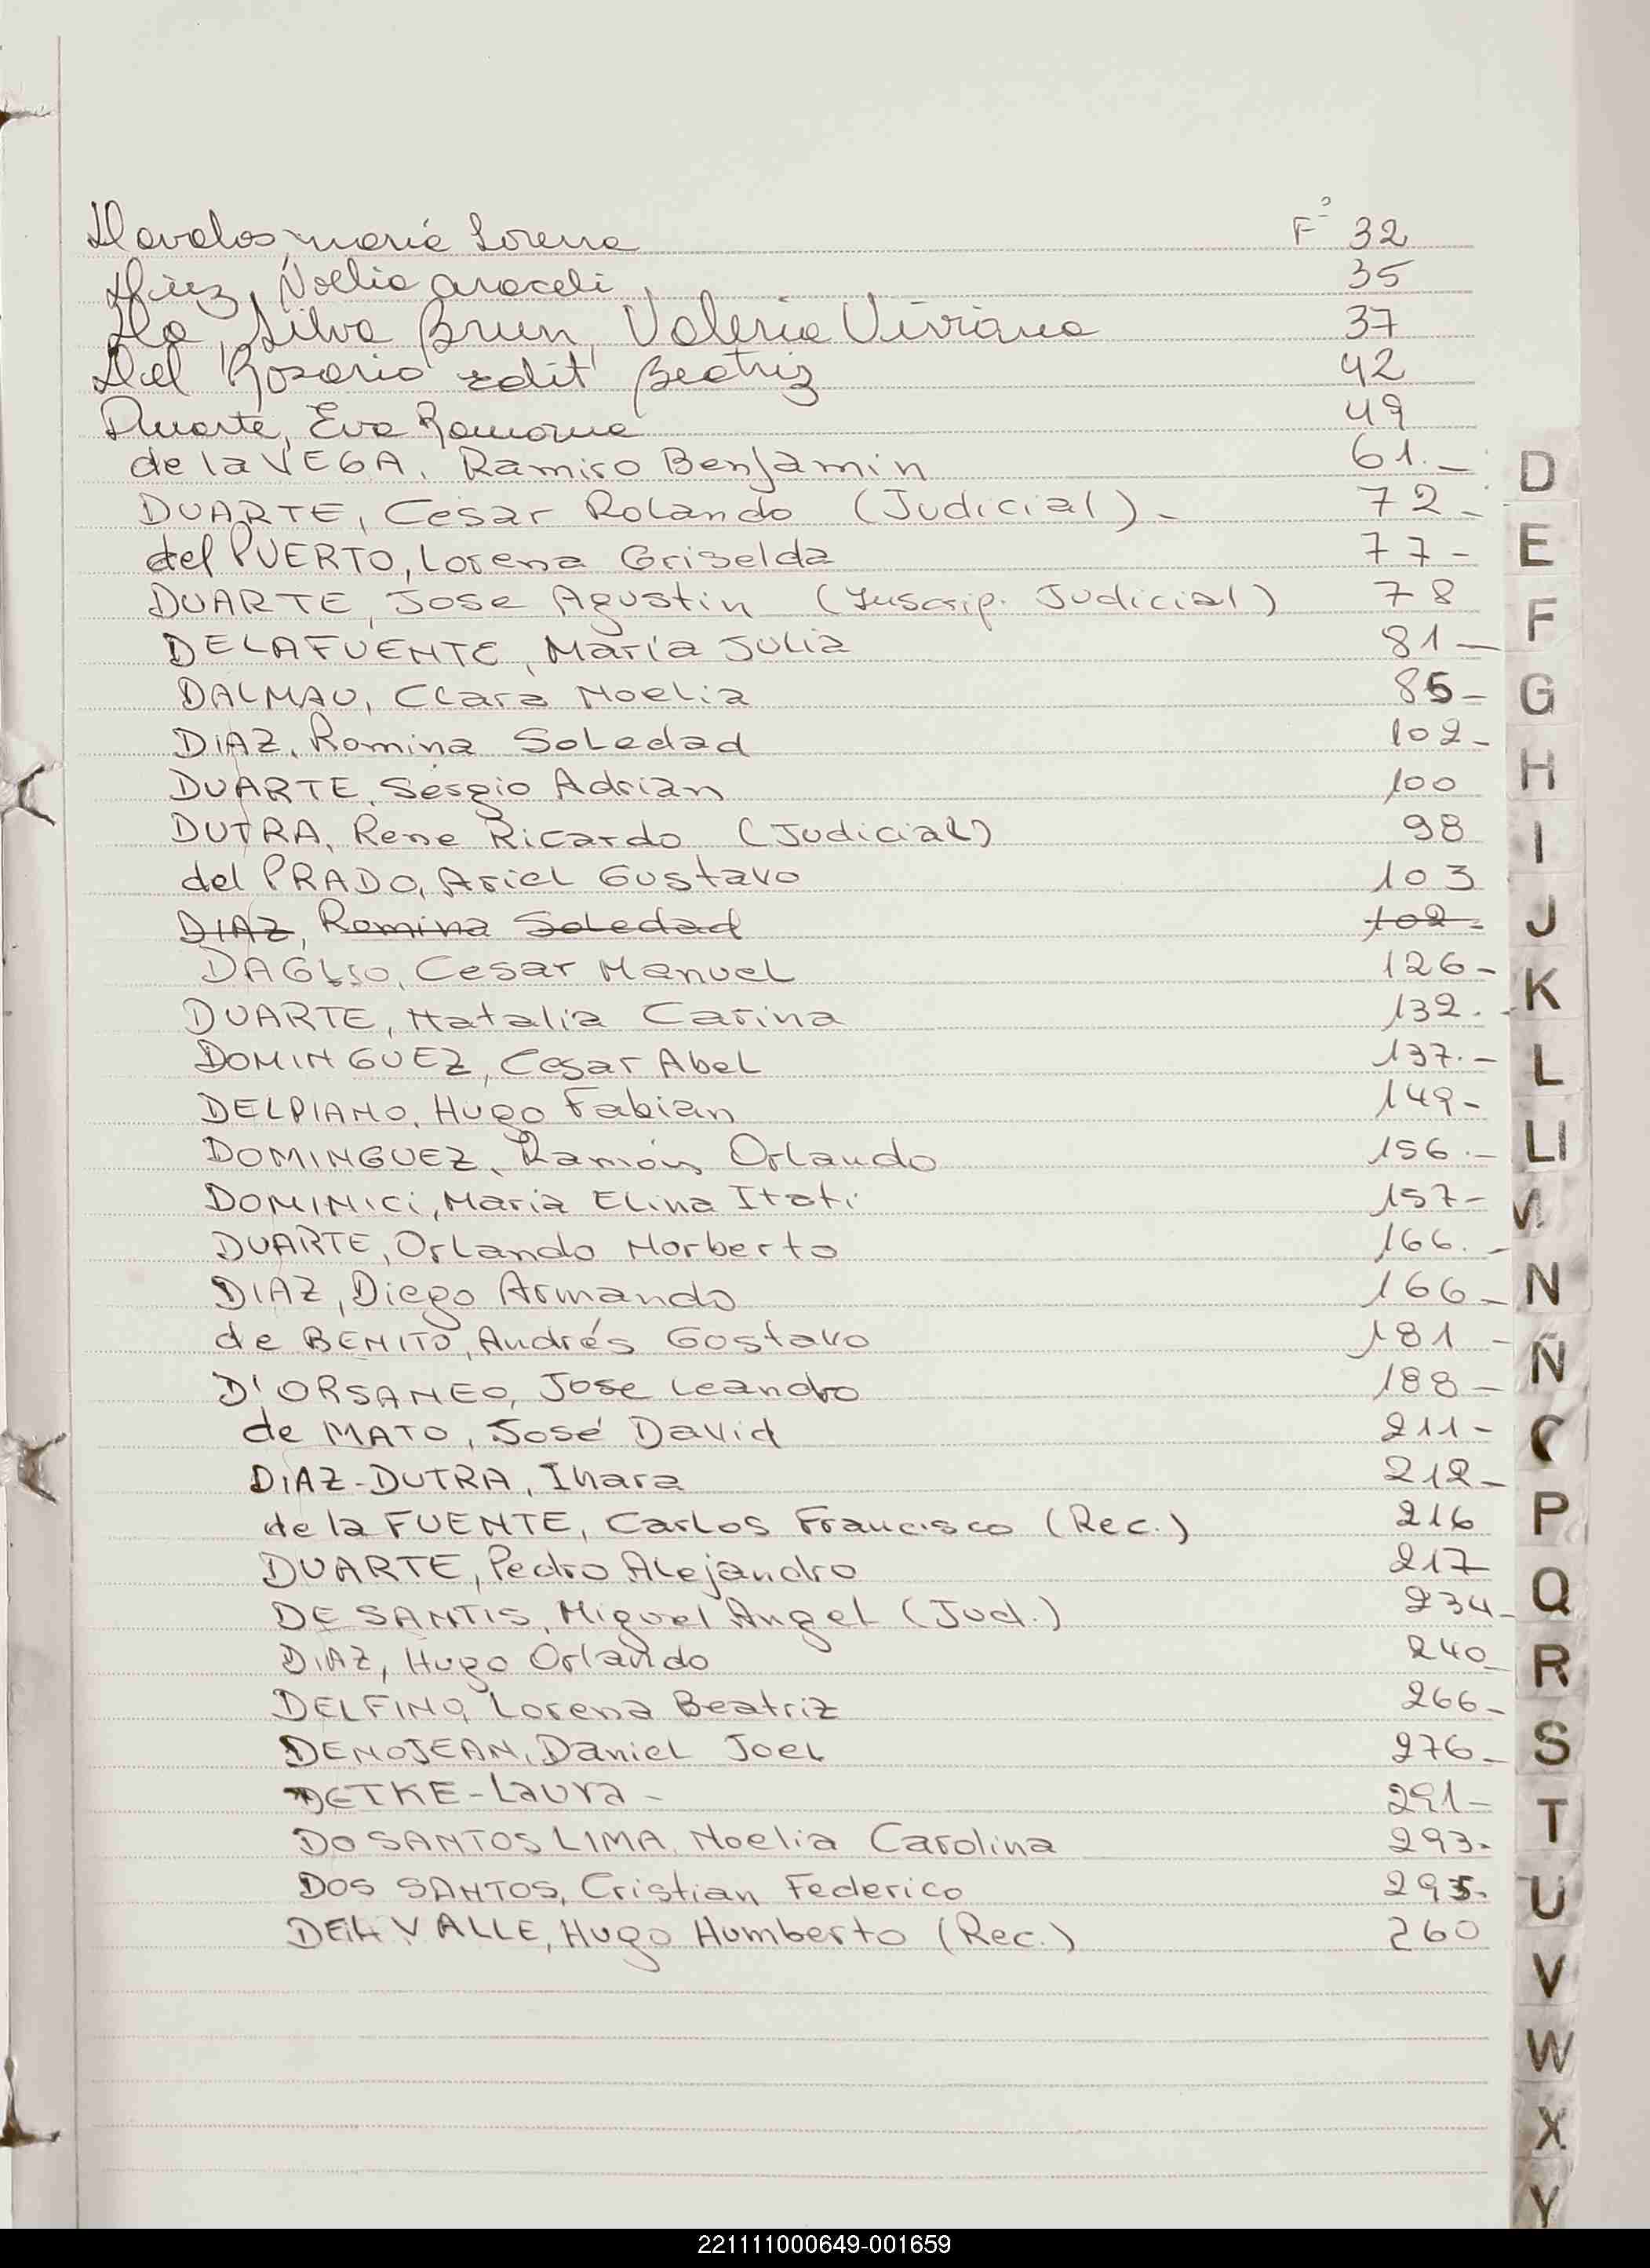 Davalos, maria Lorena F° 32
Díaz, Noelia araceli 35
Da Silva Brun, Valeria Viviana 37
Del Rosario edit Beatriz 42
Duarte, Eva Ramona 49
de la VEGA, Ramiro Benjamin 61.-
DUARTE, Cesar Rolando (Judicial)- 72-
del PUERTO, Lorena Griselda 77-
DUARTE, Jose Agustin (Inscrip. Judicial) 78
DELAFUENTE, María Julia 81-
DALMAU, Clara Noelia 85-
DIAZ, Romina Soledad 102-
DUARTE, Sergio Adrian 100
DUTRA, Rene Ricardo (Judicial) 98
del PRADO, Ariel Gustavo 103
DIAZ, Romina Soledad 102-
DAGLIO, Cesar Manuel 126-
DUARTE, Natalia Carina 132.-
DOMINGUEZ, Cesar Abel 137.-
DELPIANO, Hugo Fabian 149-
DOMINGUEZ, Ramón Orlando 156.-
DOMINICI, Maria Elina Itati 157-
DUARTE, Orlando Norberto 166.-
DIAZ, Diego Armando 166-
de BENITO, Andrés Gustavo 181-
D'ORSANEO, Jose Leandro 188-
de MATO, José David 211-
DIAZ-DUTRA, Inara 212-
de la FUENTE, Carlos Francisco (Rec.) 216
DUARTE, Pedro Alejandro 217
DE SANTIS, Miguel Angel (Jud.) 234-
DIAZ, Hugo Orlando 240-
DELFINO, Lorena Beatriz 266-
DENOJEAN, Daniel Joel 276-
DETKE-Laura- 291-
DO SANTOS LIMA, Noelia Carolina 293-
DOS SANTOS, Cristian Federico 295-
DEL VALLE, Hugo Humberto (Rec.) 260
D
E
F
G
H
I
J
K
L
Ll
N
Ñ
P
Q
R
S
T
U
V
W
X
Y
221111000649-001659